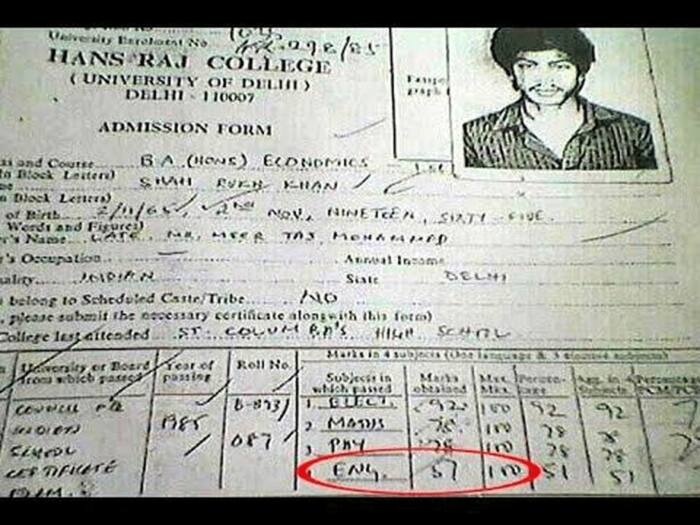 University Enrolment No.
298/85
HANS RAJ COLLEGE
( UNIVERSITY OF DELHI )
DELHI - 110007
ADMISSION FORM
and Course B.A. (HONS) ECONOMICS
n Block Letters) SHAH RUKH KHAN
n Block Letters)
of Birth 2/11/65, 2nd NOV, NINETEEN, SIXTY-FIVE.
Words and Figures)
's Name LATE. MR. MEER TAJ MOHAMMED
's Occupation Annual Income
ality INDIAN State DELHI
belong to Scheduled Caste/Tribe NO
, please submit the necessary certificate alongwith this form)
College last attended ST. COLUMBA'S HIGH SCHOOL
Marks in 4 subjects (One language & 3 elected subjects)
University or Board from which passed Year of passing Roll No. Subjects in which passed Marks obtained Max. Mks.
COUNCIL 1985 1. ELECT. 92 100 92 92
INDIAN 087 2 MATHS 78 100 78 78
SCHOOL 3 PHY 78 100 78 78
CERTIFICATE ENG. 100 51 51